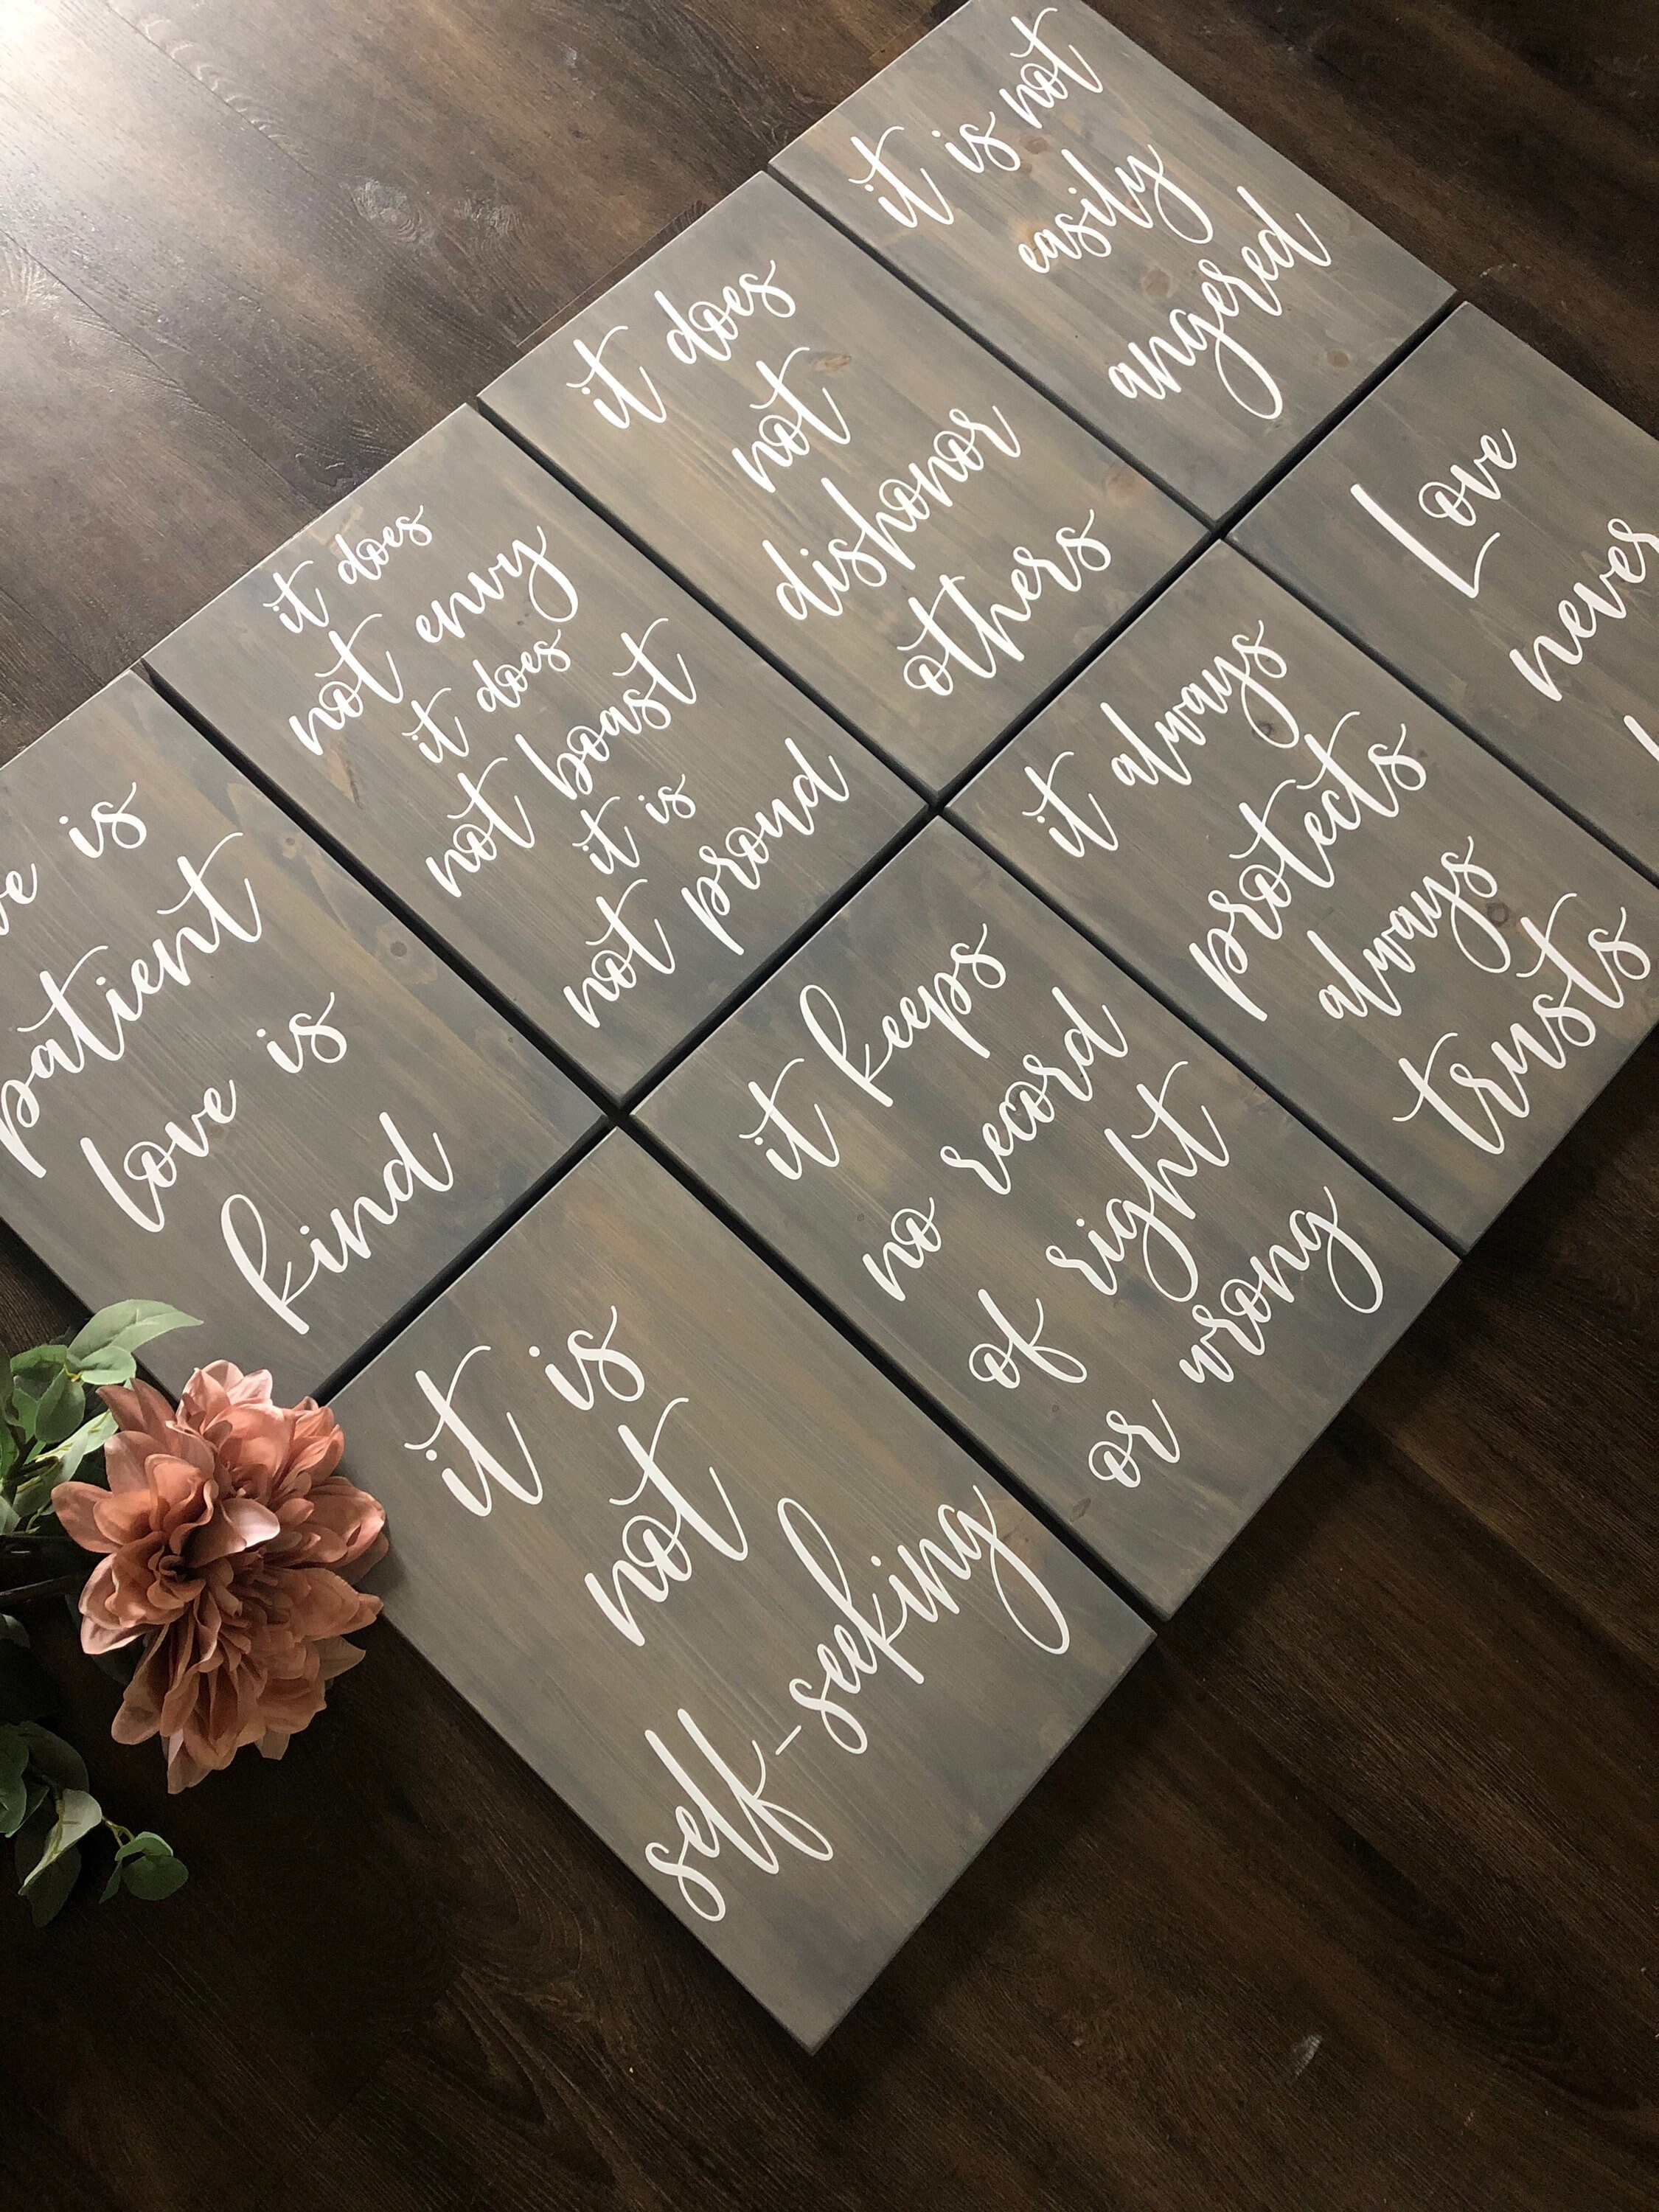 is
patient
love is
kind
it does
not envy
it does
not boast
it is
not proud
it does
not
dishonor
others
it is not
easily
angered
it is
not
self-seeking
it keeps
no record
of right
or wrong
it always
protects
always
trusts
Love
never